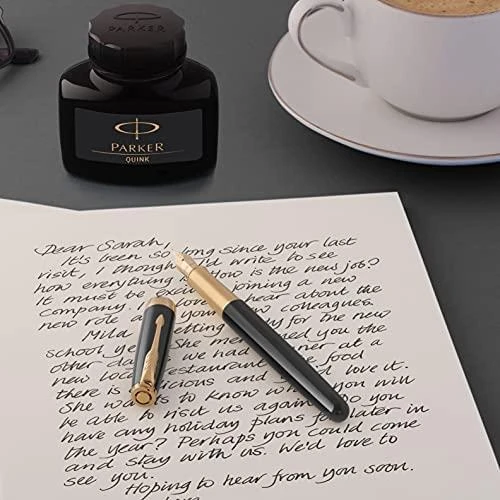 PARKER
PARKER
QUINK
Dear Sarah,
It's been so long since your last
visit, I thought I'd write to see
how everything How is the new job?
It must be joining a new
company. I hear about the
new role a new colleagues.
Mila getting for the new
school ye She me you the
other da we had er at the
new loca restaurant food
there is icious a love it.
She wa to know w you will
be able to visit us again. Do you
have any holiday plans for later in
the year? Perhaps you could come
and stay with us. We'd love to
see you.
Hoping to hear from you soon.